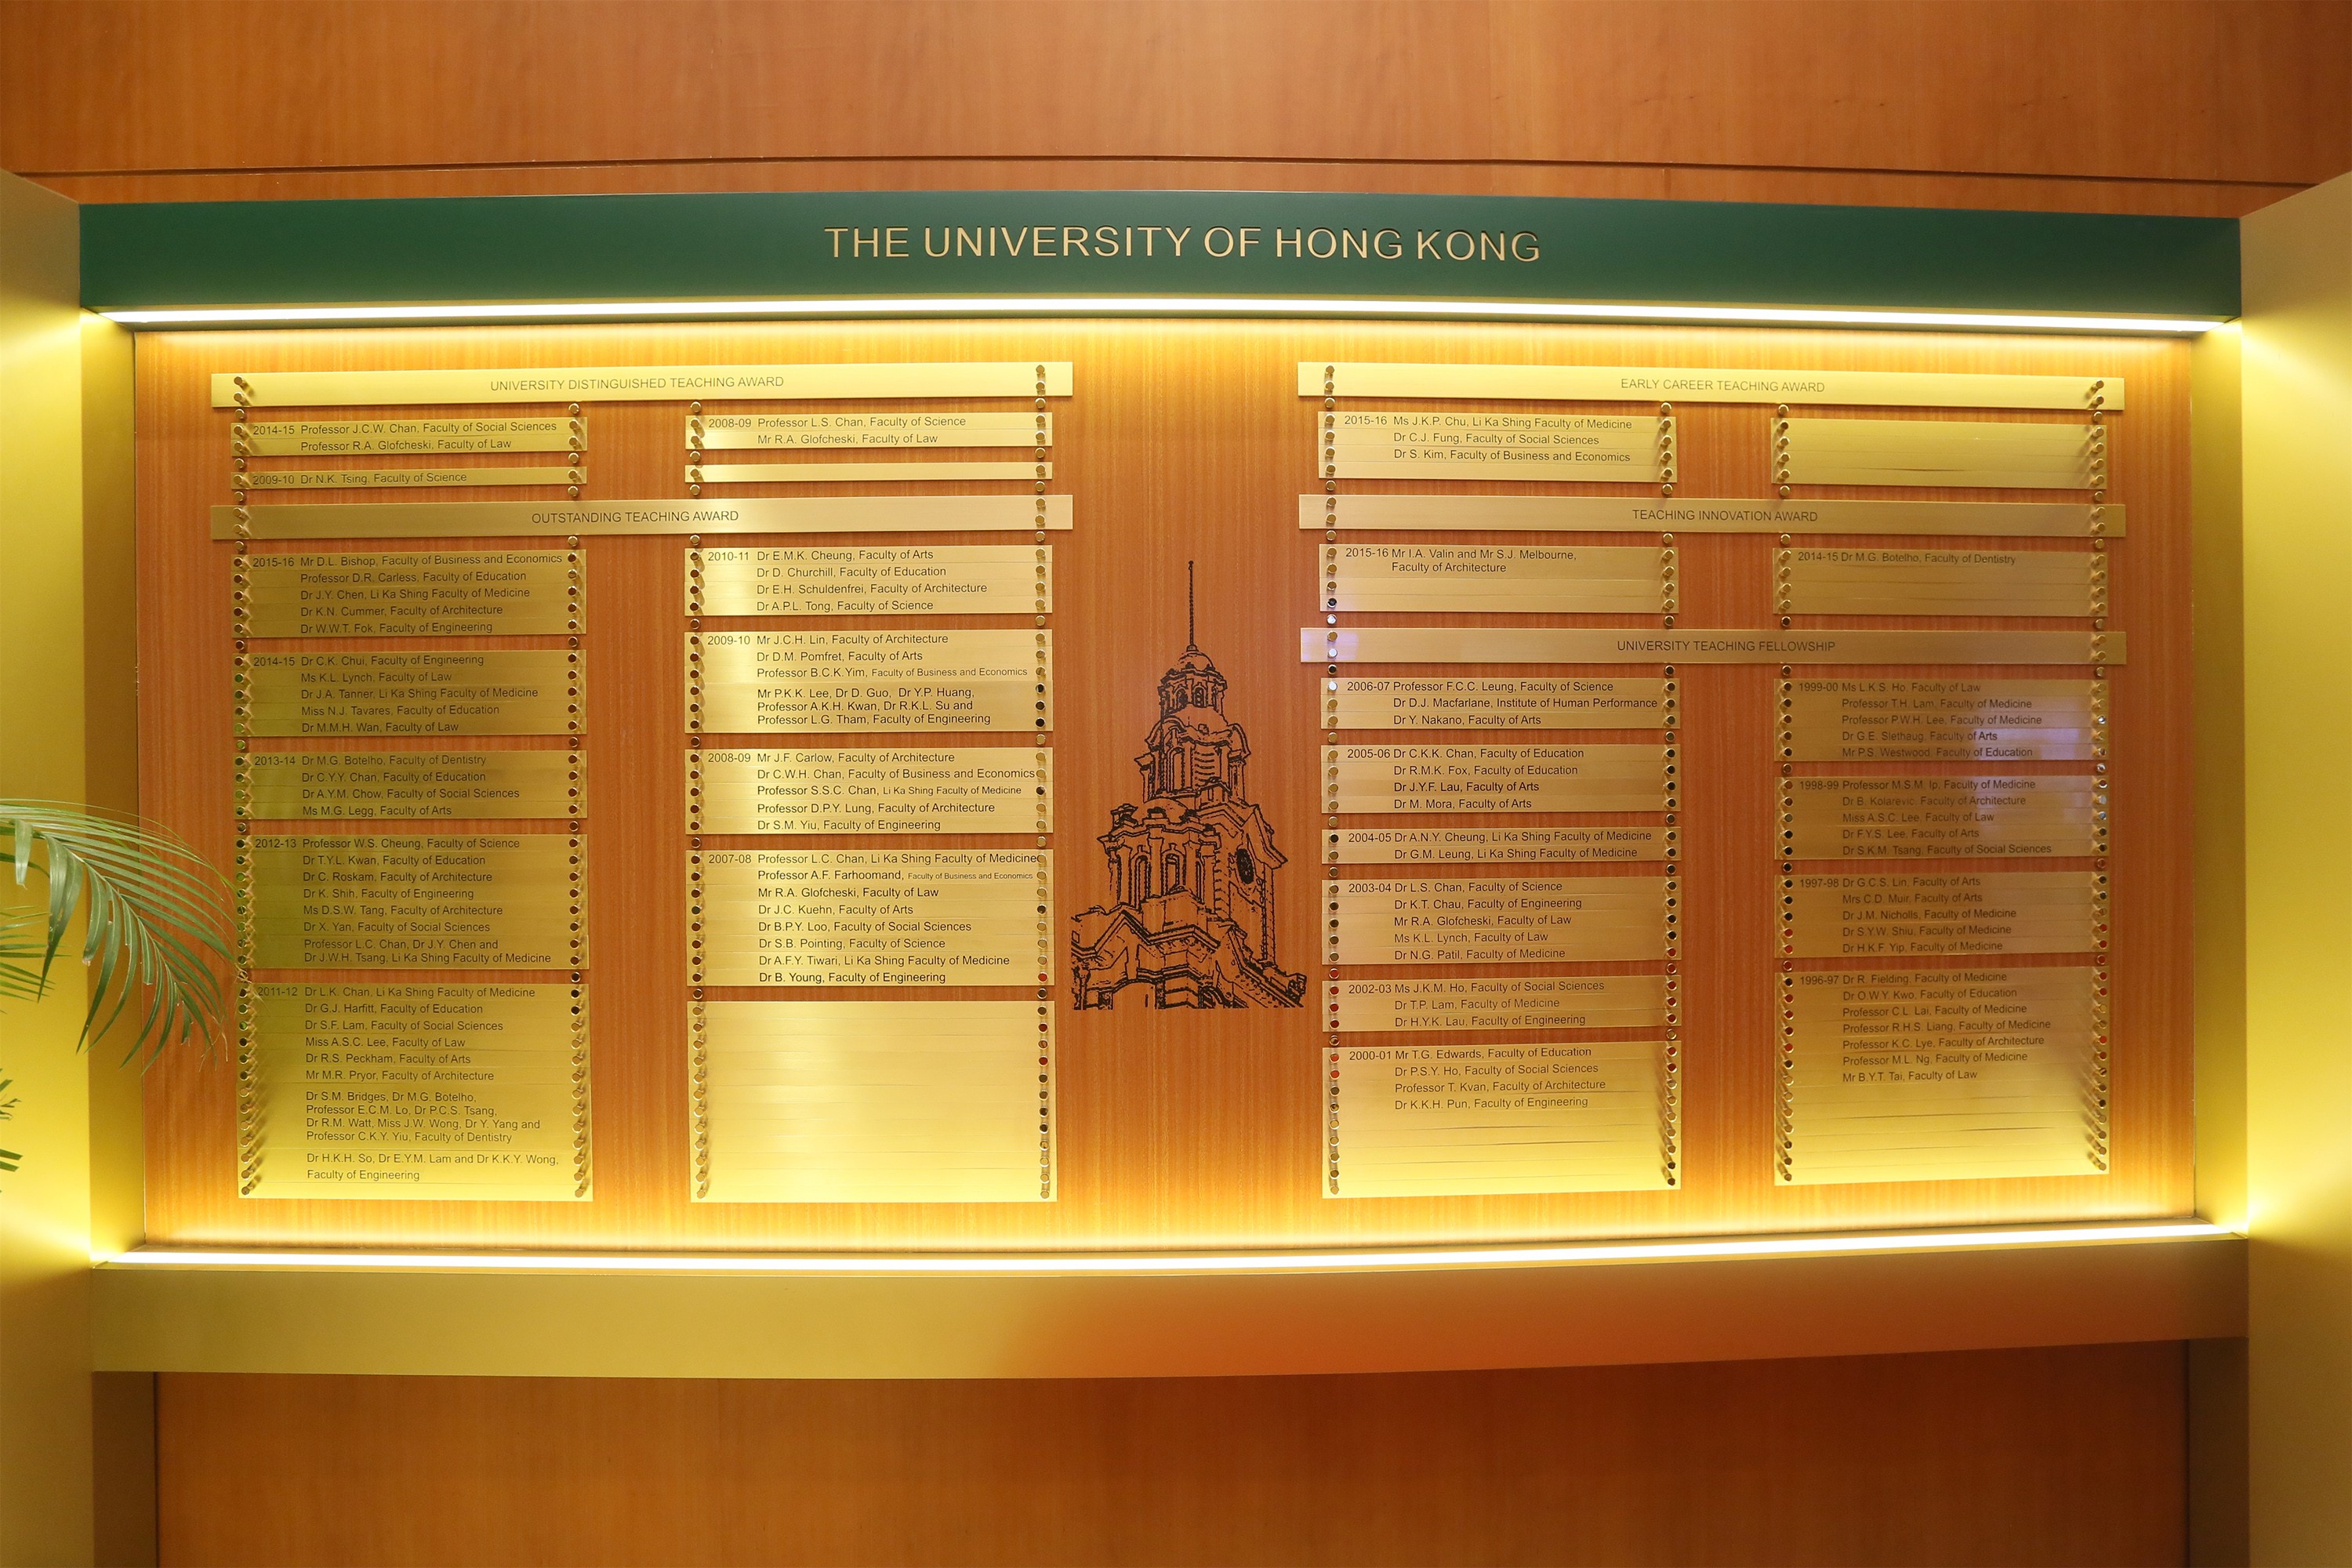 THE UNIVERSITY OF HONG KONG
UNIVERSITY DISTINGUISHED TEACHING AWARD
2014-15 Professor J.C.W. Chan, Faculty of Social Sciences
Professor R.A. Glofcheski, Faculty of Law
2009-10 Dr N.K. Tsing, Faculty of Science
2008-09 Professor L.S. Chan, Faculty of Science
Mr R.A. Glofcheski, Faculty of Law
OUTSTANDING TEACHING AWARD
2015-16 Mr D.L. Bishop, Faculty of Business and Economics
Professor D.R. Carless, Faculty of Education
Dr J.Y. Chen, Li Ka Shing Faculty of Medicine
Dr K.N. Cummer, Faculty of Architecture
Dr W.W.T. Fok, Faculty of Engineering
2014-15 Dr C.K. Chui, Faculty of Engineering
Ms K.L. Lynch, Faculty of Law
Dr J A. Tanner, Li Ka Shing Faculty of Medicine
Miss N.J. Tavares, Faculty of Education
Dr M.M.H. Wan, Faculty of Law
2013-14 Dr M.G. Botelho, Faculty of Dentistry
Dr C.Y.Y. Chan, Faculty of Education
Dr A.Y.M. Chow, Faculty of Social Sciences
Ms M.G. Legg, Faculty of Arts
2012-13 Professor W.S. Cheung, Faculty of Science
Dr T.Y.L. Kwan, Faculty of Education
Dr C. Roskam, Faculty of Architecture
Dr K. Shih, Faculty of Engineering
Ms D.S.W. Tang, Faculty of Architecture
Dr X. Yan, Faculty of Social Sciences
Professor L.C. Chan, Dr J.Y. Chen and
Dr J.W.H. Tsang, Li Ka Shing Faculty of Medicine
2011-12 Dr L.K. Chan, Li Ka Shing Faculty of Medicine
Dr G.J. Harfitt, Faculty of Education
Dr S.F. Lam, Faculty of Social Sciences
Miss A.S.C. Lee, Faculty of Law
Dr R.S. Peckham, Faculty of Arts
Mr M.R. Pryor, Faculty of Architecture
Dr S.M. Bridges, Dr M.G. Botelho,
Professor E.C.M. Lo, Dr P.C.S. Tsang,
Dr R.M. Watt, Miss J.W. Wong, Dr Y. Yang and
Professor C.K.Y. Yiu, Faculty of Dentistry
Dr H.K.H. So, Dr E.Y.M. Lam and Dr K.K.Y. Wong,
Faculty of Engineering
2010-11 Dr E.M.K. Cheung, Faculty of Arts
Dr D. Churchill, Faculty of Education
Dr E.H. Schuldenfrei, Faculty of Architecture
Dr A.P.L. Tong, Faculty of Science
2009-10 Mr J.C.H. Lin, Faculty of Architecture
Dr D.M. Pomfret, Faculty of Arts
Professor B.C.K.Yim, Faculty of Business and Economics
Mr P.K.K. Lee, Dr D. Guo, Dr Y.P. Huang,
Professor A.K.H. Kwan, Dr R.K.L. Su and
Professor L.G. Tham, Faculty of Engineering
2008-09 Mr J.F. Carlow, Faculty of Architecture
Dr C.W.H. Chan, Faculty of Business and Economics
Professor S.S.C. Chan, Li Ka Shing Faculty of Medicine
Professor D.P.Y. Lung, Faculty of Architecture
Dr S.M. Yiu, Faculty of Engineering
2007-08 Professor L.C. Chan, Li Ka Shing Faculty of Medicine
Professor A.F. Farhoomand, Faculty of Business and Economics
Mr R.A. Glofcheski, Faculty of Law
Dr J.C. Kuehn, Faculty of Arts
Dr B.P.Y. Loo, Faculty of Social Sciences
Dr S.B. Pointing, Faculty of Science
Dr A.F.Y. Tiwari, Li Ka Shing Faculty of Medicine
Dr B. Young, Faculty of Engineering
EARLY CAREER TEACHING AWARD
2015-16 Ms J.K.P. Chu, Li Ka Shing Faculty of Medicine
Dr C.J. Fung, Faculty of Social Sciences
Dr S. Kim, Faculty of Business and Economics
TEACHING INNOVATION AWARD
2015-16 Mr I.A. Valin and Mr S.J. Melbourne,
Faculty of Architecture
2014-15 Dr M.G. Botelho, Faculty of Dentistry
UNIVERSITY TEACHING FELLOWSHIP
2006-07 Professor F.C.C. Leung, Faculty of Science
Dr D.J. Macfarlane, Institute of Human Performance
Dr Y. Nakano, Faculty of Arts
2005-06 Dr C.K.K. Chan, Faculty of Education
Dr R.M.K. Fox, Faculty of Education
Dr J.Y.F. Lau, Faculty of Arts
Dr M. Mora, Faculty of Arts
2004-05 Dr A.N.Y. Cheung, Li Ka Shing Faculty of Medicine
Dr G.M. Leung, Li Ka Shing Faculty of Medicine
2003-04 Dr L.S. Chan, Faculty of Science
Dr K.T. Chau, Faculty of Engineering
Mr R.A. Glofcheski, Faculty of Law
Ms K.L. Lynch, Faculty of Law
Dr N.G. Patil, Faculty of Medicine
2002-03 Ms J.K.M. Ho, Faculty of Social Sciences
Dr T.P. Lam, Faculty of Medicine
Dr H.Y.K. Lau, Faculty of Engineering
2000-01 Mr T.G. Edwards, Faculty of Education
Dr P.S.Y. Ho, Faculty of Social Sciences
Professor T. Kvan, Faculty of Architecture
Dr K.K.H. Pun, Faculty of Engineering
1999-00 Ms L.K.S. Ho, Faculty of Law
Professor T.H. Lam, Faculty of Medicine
Professor P.W.H. Lee, Faculty of Medicine
Dr G.E. Slethaug, Faculty of Arts
Mr P.S. Westwood, Faculty of Education
1998-99 Professor M.S.M. Ip, Faculty of Medicine
Dr B. Kolarevic, Faculty of Architecture
Miss A.S.C. Lee, Faculty of Law
Dr F.Y.S. Lee, Faculty of Arts
Dr S.K.M. Tsang, Faculty of Social Sciences
1997-98 Dr G.C.S. Lin, Faculty of Arts
Mrs C.D. Muir, Faculty of Arts
Dr J.M. Nicholls, Faculty of Medicine
Dr S.Y.W. Shiu, Faculty of Medicine
Dr H.K.F. Yip, Faculty of Medicine
1996-97 Dr R. Fielding, Faculty of Medicine
Dr O.W.Y. Kwo, Faculty of Education
Professor C.L. Lai, Faculty of Medicine
Professor R.H.S. Liang, Faculty of Medicine
Professor K.C. Lye, Faculty of Architecture
Professor M.L. Ng, Faculty of Medicine
Mr B.Y.T. Tai, Faculty of Law